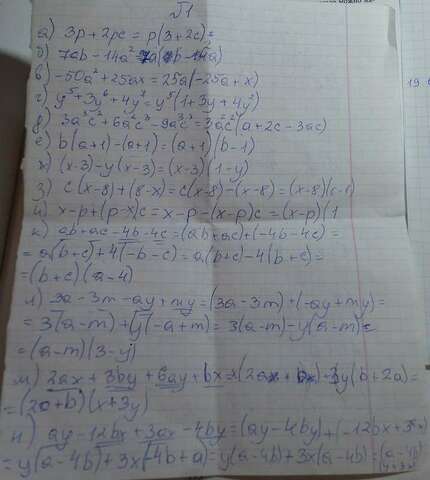 №1
а) 3p + 2pc = p(3+2c);
б) 7ab - 14a² = 7a(b -
в) -50a² + 25ax = 25a(-25a+x)
г) y⁵ + 3y⁶ + 4y⁷ = y⁵(1+3y+4y²)
д) 3a³c² + 6a²c³ - 9ac² = 3a²c²(a+2c-3ac)
е) b(a+1)-(a+1)=(a+1)(b-1)
ж) (x-3)-y(x-3)=(x-3)(1-y)
з) c(x-8)+(8-x)=c(x-8)-(x-8)=(x-8)(c-1)
и) x-p+(p-x)c = x-p-(x-p)c=(x-p)(1
к) ab+ac-4b-4c=(ab+ac)+(-4b-4c)=
=a(b+c)+4(-b-c)=a(b+c)-4(b+c)=
=(b+c)(a-4)
л) 3a-3m-ay+my=(3a-3m)+(-ay+my)=
=3(a-m)+y(-a+m)=3(a-m)-y(a-m)=
=(a-m)(3-y)
м) 2ax+3by+6ay+bx=x(2a + b)+3y(b+2a)=
=(2a+b)(x+3y)
н) ay-12bx+3ax-4by=(ay-4by)+(-12bx+3ax
=y(a-4b)+3x(-4b+a)=y(a-4b)+3x(a-4b)=(a-4b)